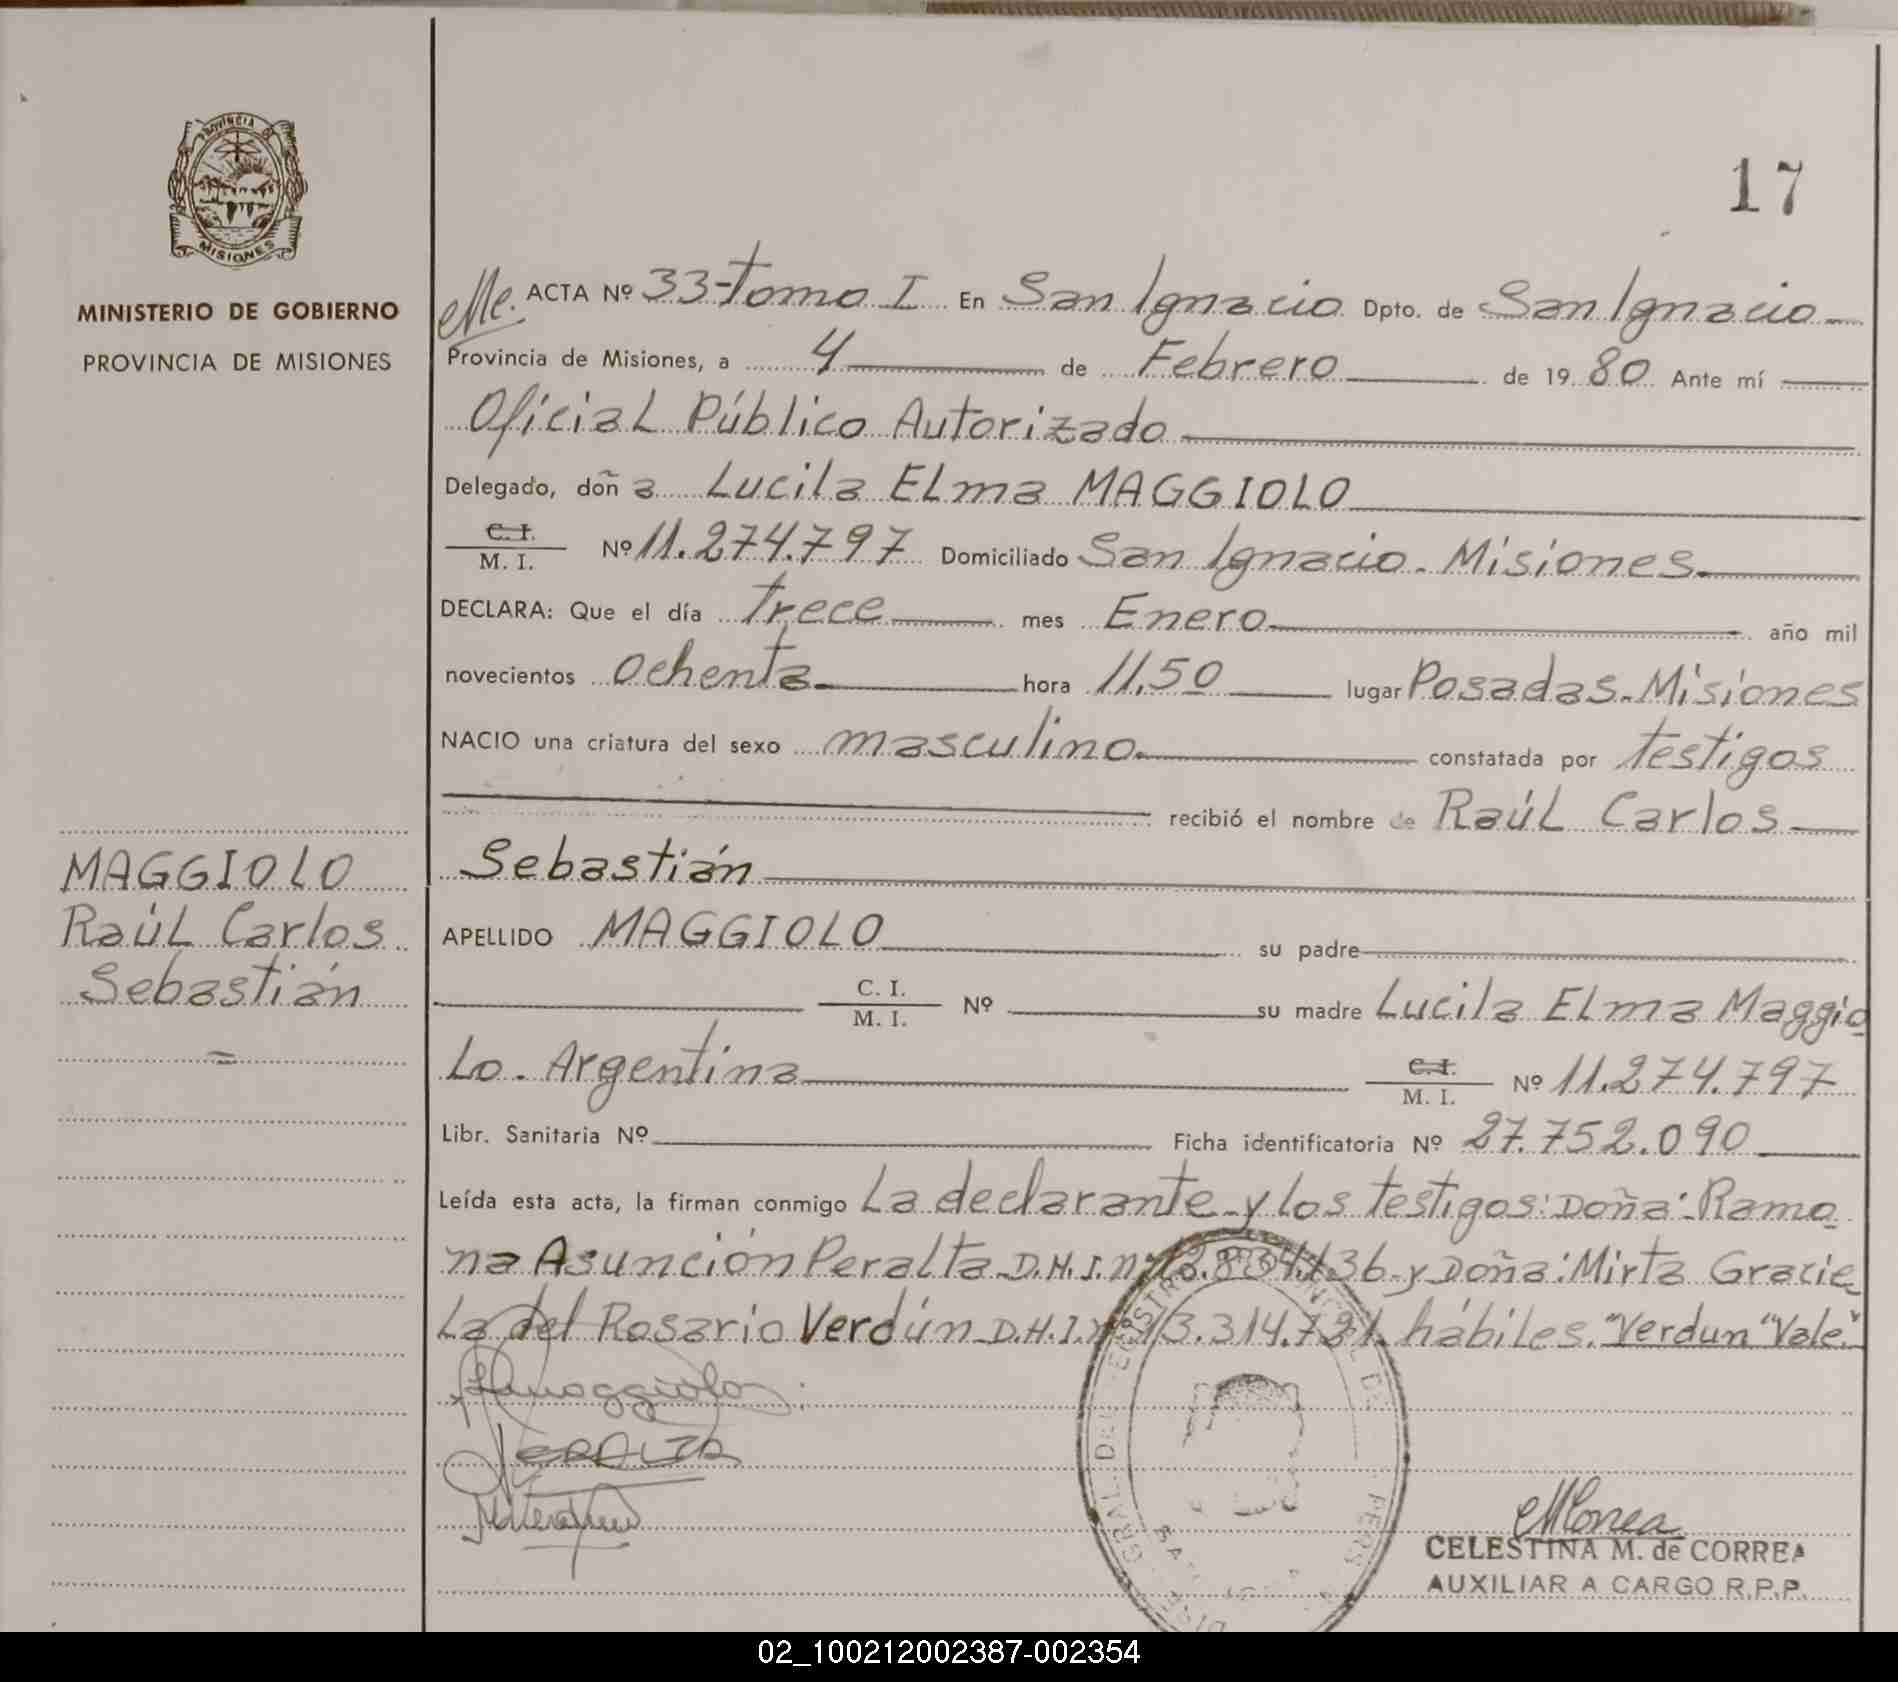 PROVINCIA DE
MISIONES
MINISTERIO DE GOBIERNO
PROVINCIA DE MISIONES
17
ACTA Nº 33-Tomo I En San Ignacio Dpto. de San Ignacio
Provincia de Misiones, a 4 de Febrero de 1980 Ante mí
Oficial Público Autorizado
Delegado, doña Lucila Elma MAGGIOLO
C. I.
M. I. Nº 11.274.797 Domiciliado San Ignacio - Misiones
DECLARA: Que el día Trece mes Enero año mil
novecientos ochenta hora 11,50 lugar Posadas - Misiones
NACIO una criatura del sexo masculino constatada por testigos
recibió el nombre de Raúl Carlos
Sebastián
APELLIDO MAGGIOLO su padre
C. I.
M. I. Nº su madre Lucila Elma Maggio
lo - Argentina C. I.
M. I. Nº 11.274.797
Libr. Sanitaria Nº Ficha identificatoria Nº 27.752.090
Leída esta acta, la firman conmigo La declarante y los testigos: Doña: Ramo
na Asunción Peralta D.N.I. nº 834.136 y Doña: Mirta Gracie
la del Rosario Verdún D.N.I. nº 13.314.721 hábiles. "Verdun" "Vale"
MAGGIOLO
Raúl Carlos
Sebastián
=
CELESTINA M. de CORREA
AUXILIAR A CARGO R.P.P.
02_100212002387-002354